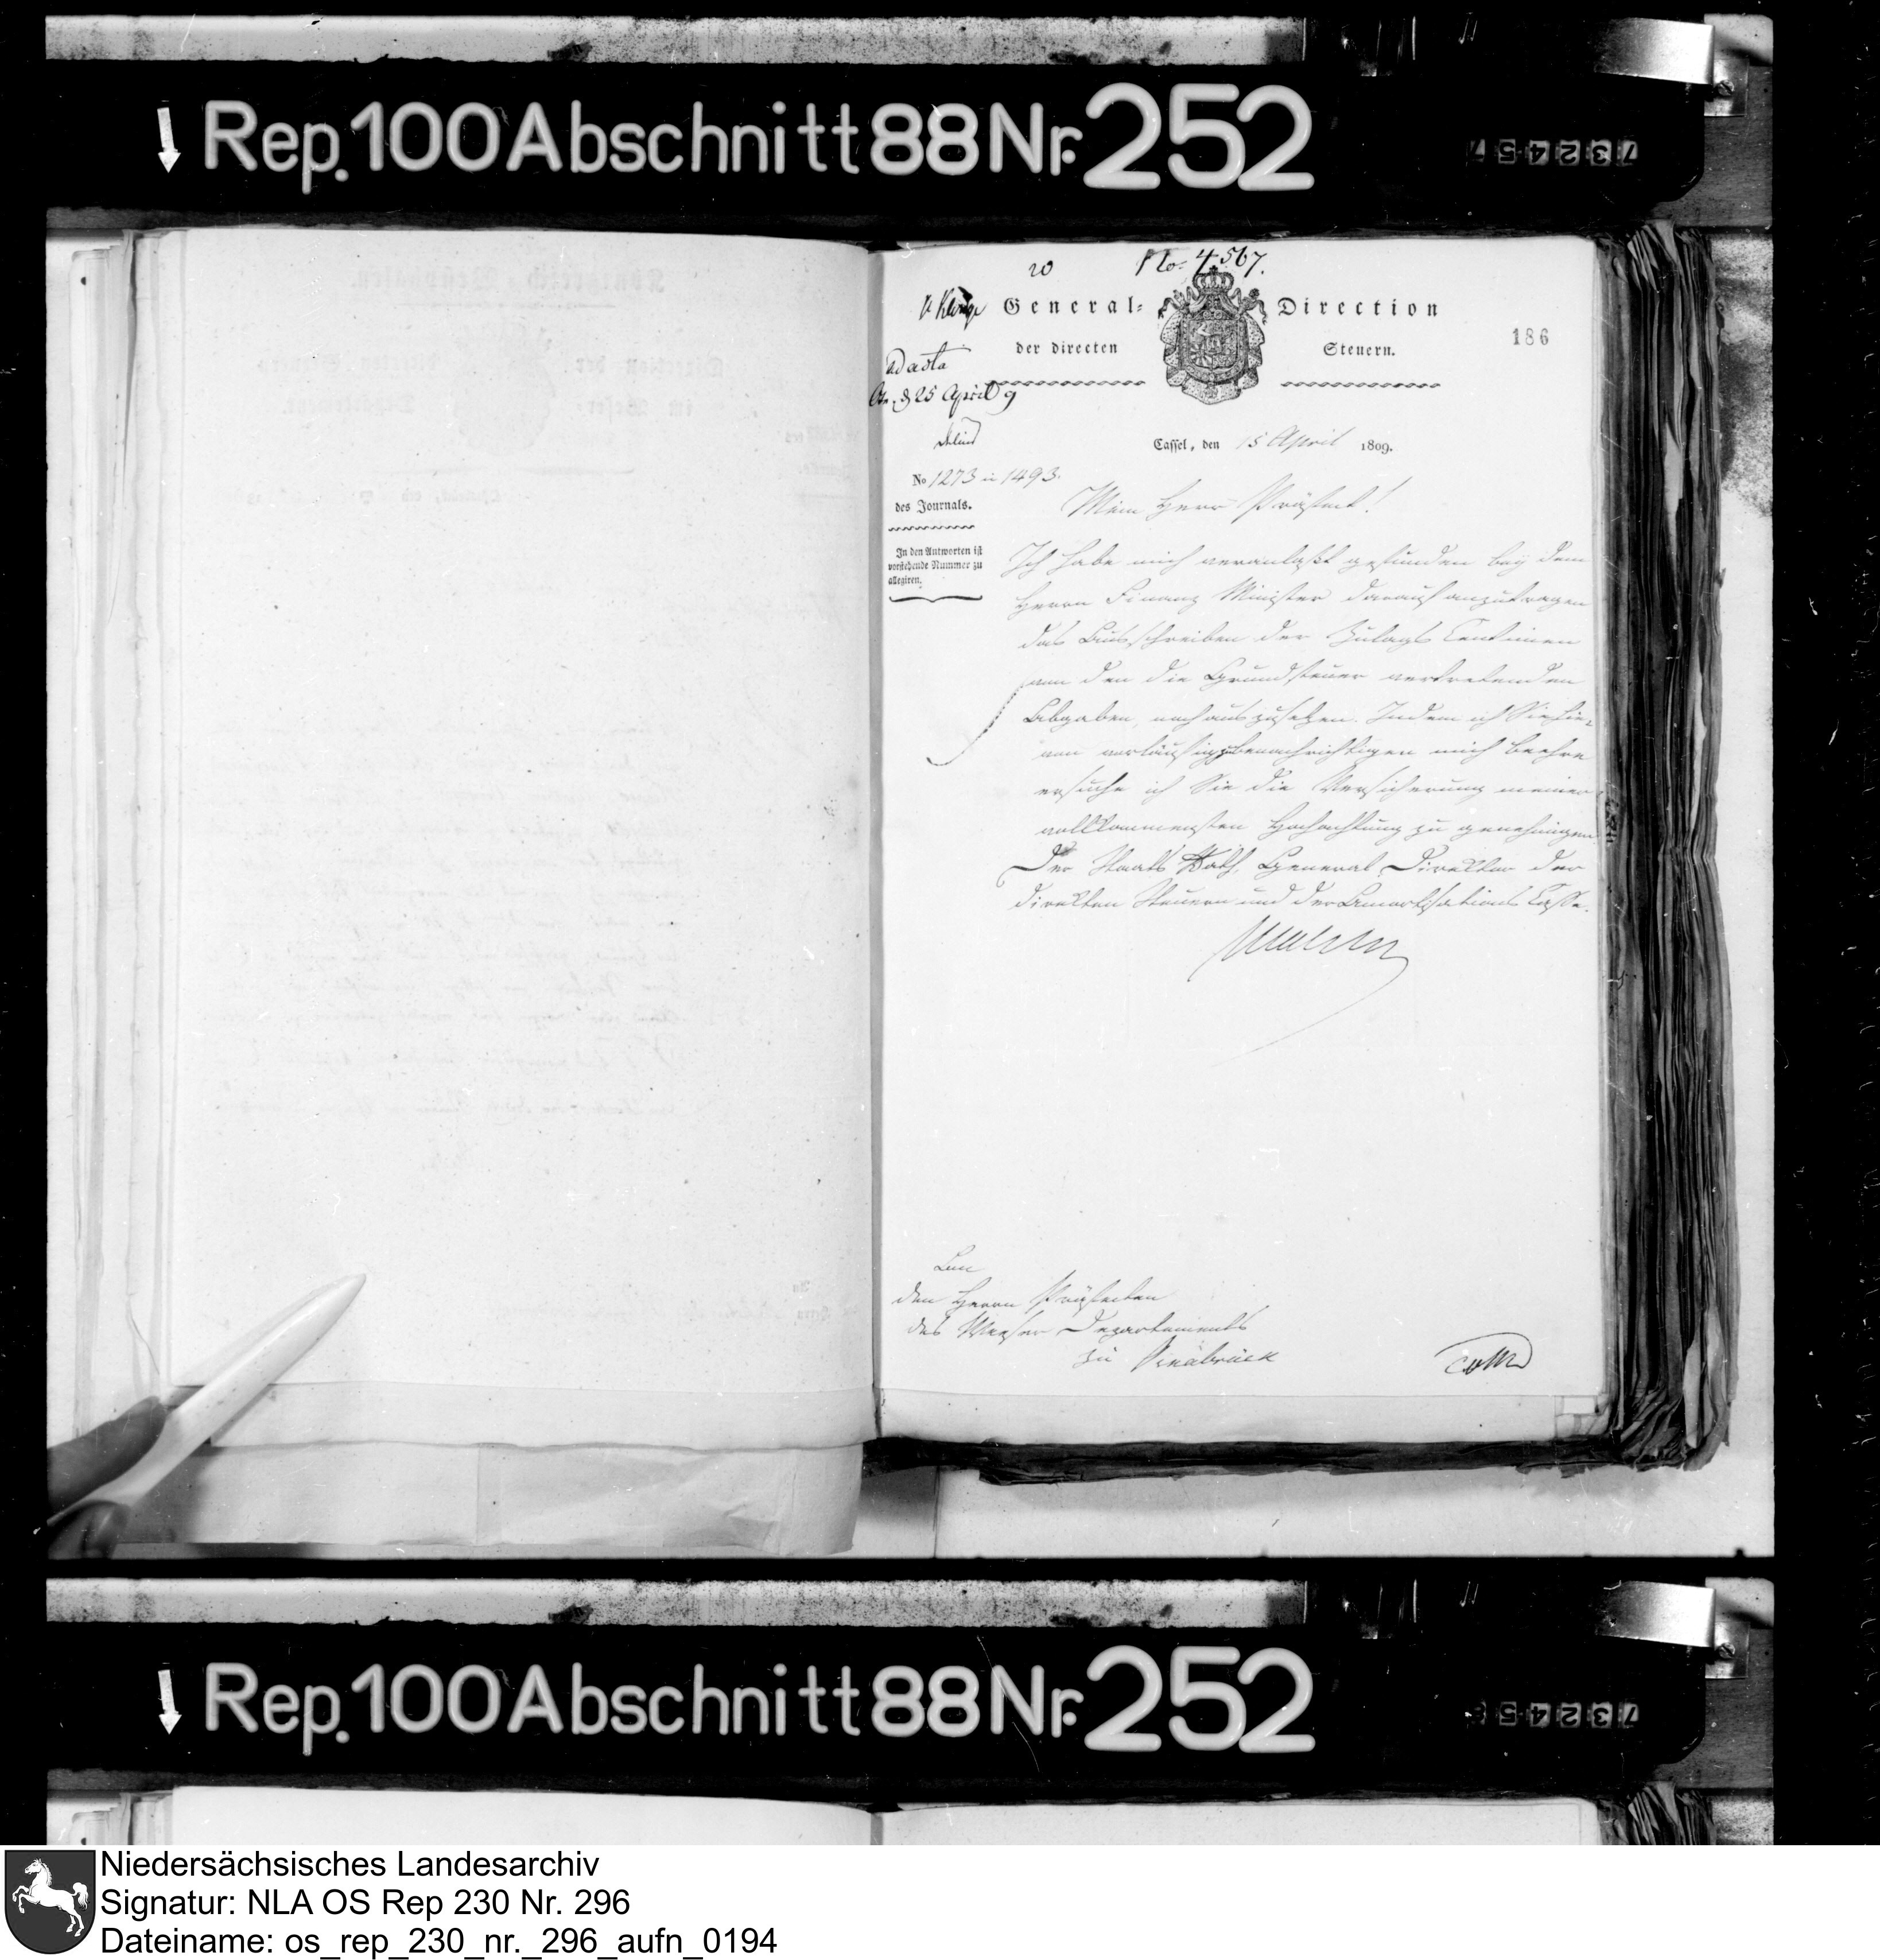 Rep. 100 Abschnitt 88 Nr. 252
732457
No. 4567.
General- Direction
der directen Steuern.
186
ad acta
Osn. d 25 April 9
Cassel, den 15 April 1809.
No 1273 u 1493.
des Journals.
In den Antworten ist
vorstehende Nummer zu
allegiren.
Mein Herr Präfect!
Ich habe mich veranlaßt gefunden bey dem
Herrn Finanz Minister darauf anzutragen
das Ausschreiben der Zulags Centimen
von den die Grundsteuer vertretenden
Abgaben, noch auszusetzen. Indem ich Sie hie-
von vorläufig zu benachrichtigen mich beehre
ersuche ich Sie die Versicherung meiner
vollkommensten Hochachtung zu genehmigen
Der Staats Rath, General Direktor der
direkten Steuern und der Amortisations Casse.
An
den Herrn Präfecten
des Weser Departements
zu Osnabrück
Rep. 100 Abschnitt 88 Nr. 252
Niedersächsisches Landesarchiv
Signatur: NLA OS Rep 230 Nr. 296
Dateiname: os_rep_230_nr._296_aufn_0194